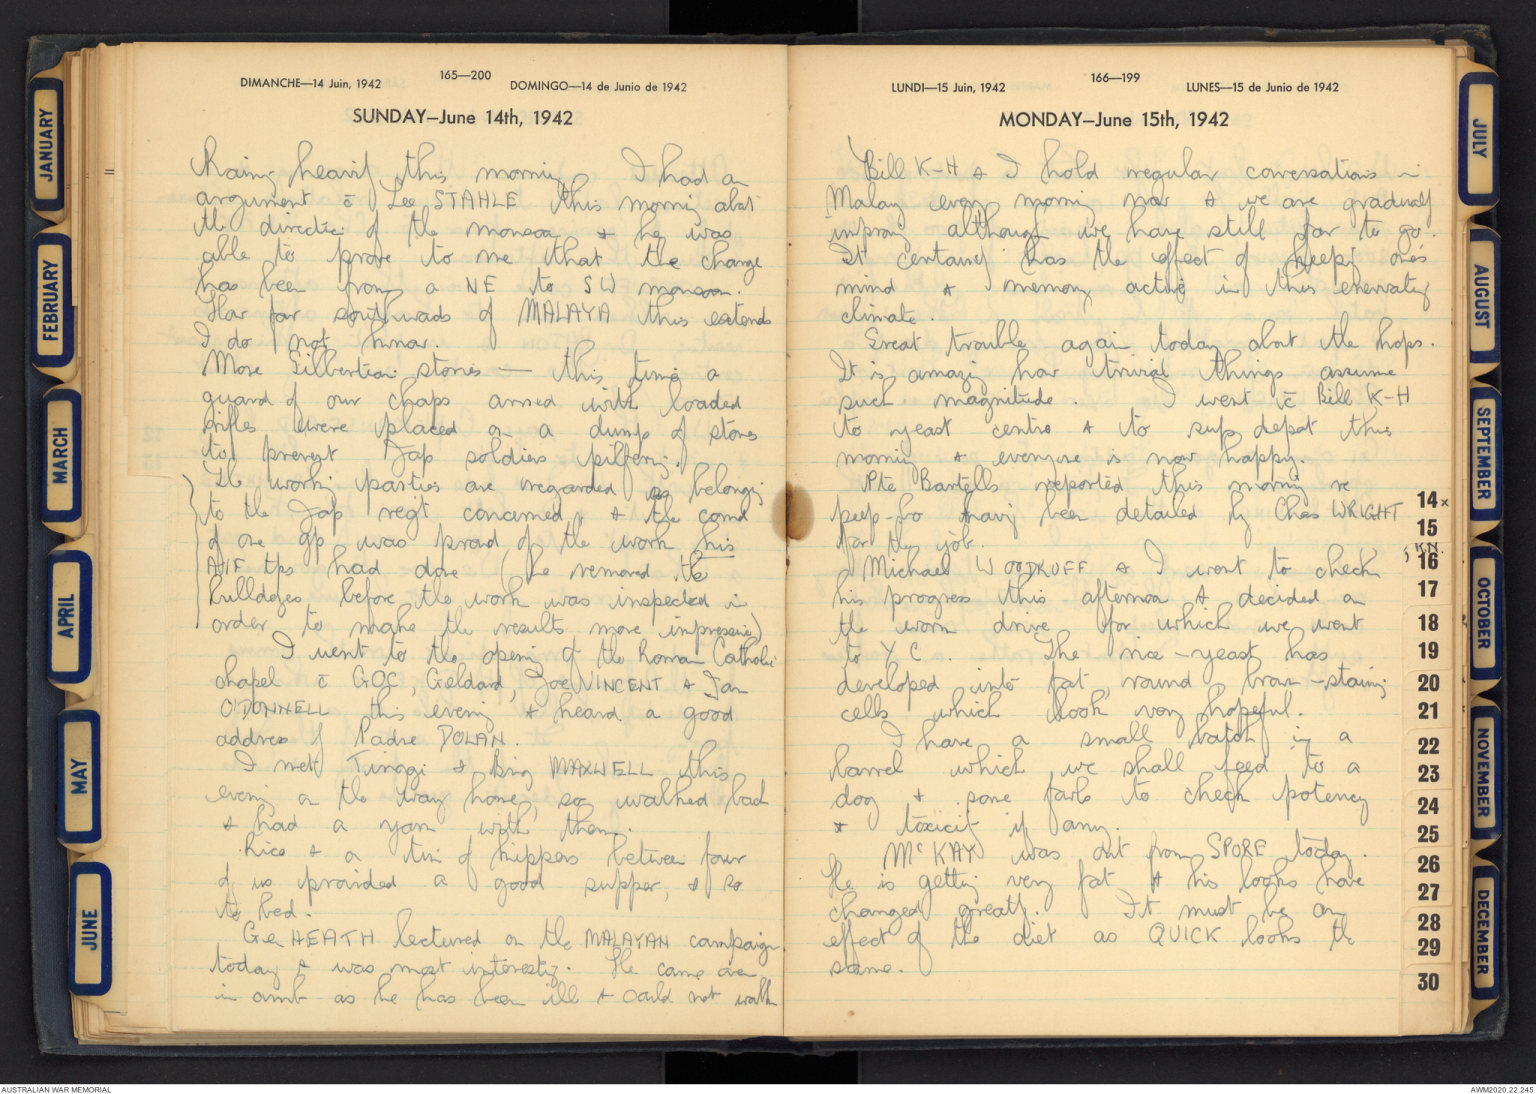 DIMANCHE—14 Juin, 1942
165—200
DOMINGO—14 de Junio de 1942
SUNDAY—June 14th, 1942
Raining heavily this morning. I had an
argument c̄ Lee STAHLE this morning about
the direction of the monsoon & he was
able to prove to me that the change
has been from a NE to SW monsoon.
How far southwards of MALAYA this extends
I do not know.
More Gilbertian stories — this time a
guard of our chaps armed with loaded
rifles were placed on a dump of stores
to prevent Jap soldiers pilfering.
The working parties are regarded as belonging
to the Jap regt concerned & the comd
of one gp was proud of the work his
AIF tps had done (he removed the
bulldozers before the work was inspected in
order to make the results more impressive)
I went to the opening of the Roman Catholic
chapel c̄ GOC, Geldard, Joe VINCENT & Ian
O'DONNELL this evening & heard a good
address of Padre DOLAN.
I met Tinggi & Brig MAXWELL this
evening on the way home, so walked back
& had a yarn with them.
Rice & a tin of kippers between four
of us provided a good supper, & so
to bed.
Gen HEATH lectured on the MALAYAN campaign
today & was most interesting. He came over
in amb as he has been ill & could not walk
LUNDI—15 Juin, 1942
166—199
LUNES—15 de Junio de 1942
MONDAY—June 15th, 1942
Bill K-H & I hold regular conversations in
Malay every morning now & we are gradually
improving although we have still far to go.
It certainly has the effect of keeping one's
mind & memory active in this enervating
climate.
Great trouble again today about the hops.
It is amazing how trivial things assume
such magnitude. I went c̄ Bill K-H
to yeast centre & to sup depot this
morning & everyone is now happy.
Pte Bartells reported this morning re
having been detailed by Chas WRIGHT
for the job.
Michael WOODRUFF & I went to check
his progress this afternoon & decided on
the worm drive for which we went
to Y C. The rice-yeast has
developed into fat, round brown-staining
cells which look very hopeful.
I have a small batch in a
barrel which we shall feed to a
dog & some fowls to check potency
& toxicity if any.
McKAY was out from SPORE today.
He is getting very fat & his looks have
changed greatly. It must be an
effect of the diet as QUICK looks the
same.
JANUARY
FEBRUARY
MARCH
APRIL
MAY
JUNE
JULY
AUGUST
SEPTEMBER
OCTOBER
NOVEMBER
DECEMBER
14x
15
16
17
18
19
20
21
22
23
24
25
26
27
28
29
30
AUSTRALIAN WAR MEMORIAL
AWM2020.22.245